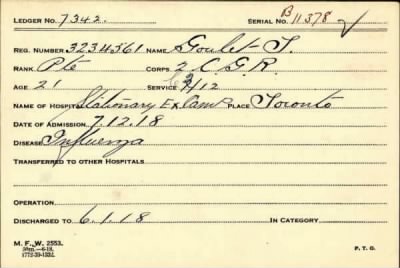 LEDGER No. 7342. SERIAL No. B 11378
REG. NUMBER 3234561 NAME Goulet J.
RANK Pte CORPS 2 C.G.R.
AGE 21 SERVICE /12
NAME OF HOSPITAL Stationary Ex Camp PLACE Toronto
DATE OF ADMISSION 7.12.18
DISEASE Influenza
TRANSFERRED TO OTHER HOSPITALS
OPERATION
DISCHARGED TO 6.1.18 IN CATEGORY
M. F. W. 2553.
50m.-6-18.
1772-39-1352.
P. T. O.